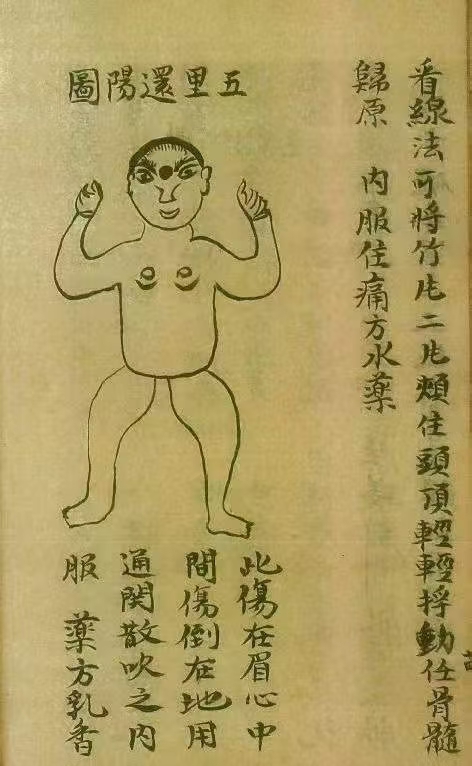 看線法可將竹片二片頰住頭頂輕輕捊動任骨髓
歸原 內服住痛方水藥
五里還陽圖
此傷在眉心中
間傷倒在地用
通関散吹之內
服 藥方乳香